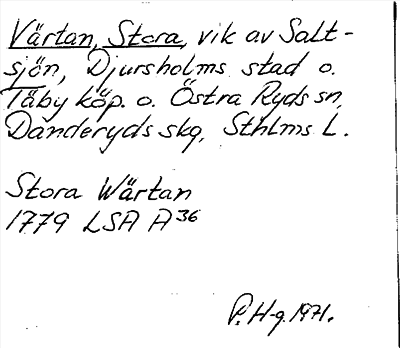 Värtan, Stora, vik av Salt-
sjön, Djursholms stad o.
Täby köp. o. Östra Ryds sn,
Danderyds skg, Sthlms L.
Stora Wärtan
1779 LSA A 36
P. H-g. 1971.